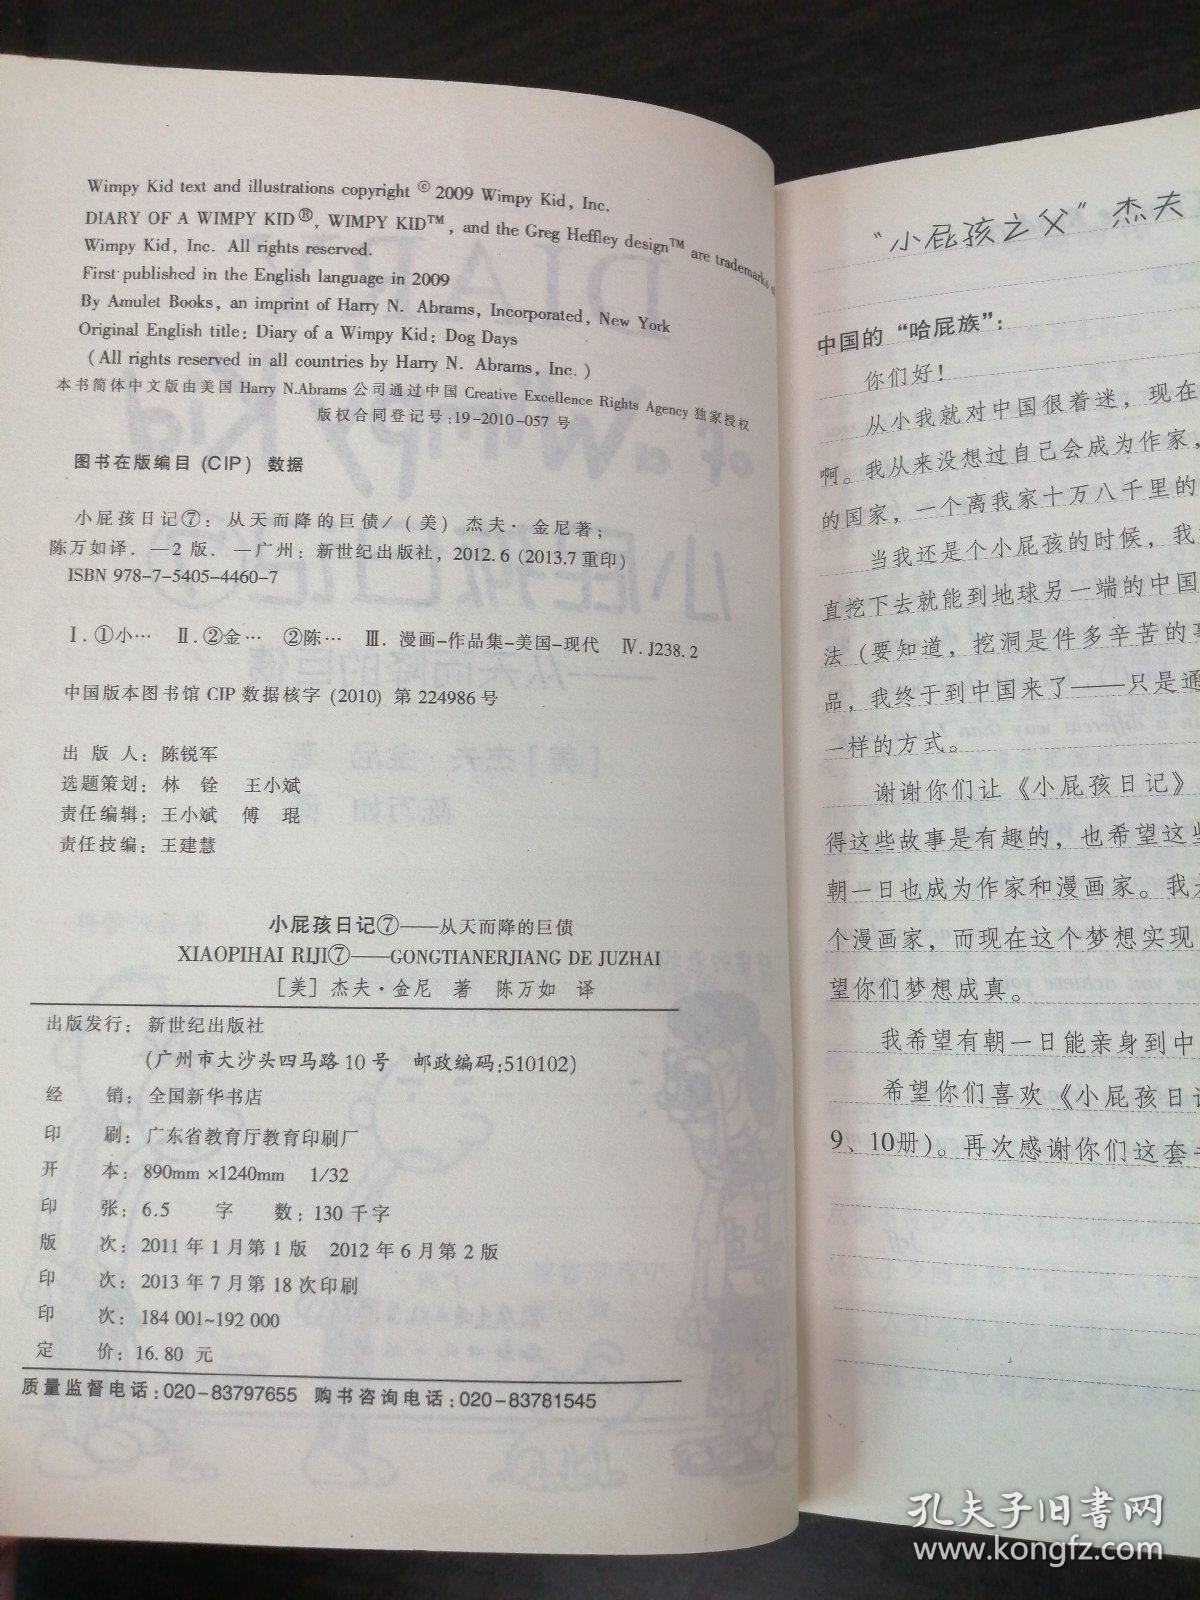 Wimpy Kid text and illustrations copyright © 2009 Wimpy Kid, Inc.
DIARY OF A WIMPY KID®, WIMPY KID™, and the Greg Heffley design™ are trademarks of
Wimpy Kid, Inc. All rights reserved.
First published in the English language in 2009
By Amulet Books, an imprint of Harry N. Abrams, Incorporated, New York
Original English title: Diary of a Wimpy Kid: Dog Days
(All rights reserved in all countries by Harry N. Abrams, Inc.)
本书简体中文版由美国 Harry N.Abrams 公司通过中国 Creative Excellence Rights Agency 独家授权
版权合同登记号:19-2010-057 号
图书在版编目 (CIP) 数据
小屁孩日记⑦：从天而降的巨债/（美）杰夫·金尼著；
陈万如译. —2 版. —广州：新世纪出版社，2012.6 (2013.7 重印)
ISBN 978-7-5405-4460-7
Ⅰ.①小… Ⅱ.②金… ②陈… Ⅲ. 漫画-作品集-美国-现代 Ⅳ.J238.2
中国版本图书馆 CIP 数据核字 (2010) 第 224986 号
出 版 人：陈锐军
选题策划：林 铨 王小斌
责任编辑：王小斌 傅 琨
责任技编：王建慧
小屁孩日记⑦——从天而降的巨债
XIAOPIHAI RIJI⑦——GONGTIANERJIANG DE JUZHAI
［美］杰夫·金尼 著 陈万如 译
出版发行：新世纪出版社
(广州市大沙头四马路 10 号 邮政编码:510102)
经 销：全国新华书店
印 刷：广东省教育厅教育印刷厂
开 本：890mm ×1240mm 1/32
印 张：6.5 字 数：130 千字
版 次：2011 年 1 月第 1 版 2012 年 6 月第 2 版
印 次：2013 年 7 月第 18 次印刷
印 次：184 001~192 000
定 价：16.80 元
质量监督电话:020-83797655 购书咨询电话:020-83781545
“小屁孩之父”杰夫
中国的“哈屁族”：
你们好！
从小我就对中国很着迷，现在
啊。我从来没想过自己会成为作家，
的国家，一个离我家十万八千里的
当我还是个小屁孩的时候，我
直挖下去就能到地球另一端的中国
法（要知道，挖洞是件多辛苦的事
品，我终于到中国来了——只是通
一样的方式。
谢谢你们让《小屁孩日记》
得这些故事是有趣的，也希望这些
朝一日也成为作家和漫画家。我
个漫画家，而现在这个梦想实现
望你们梦想成真。
我希望有朝一日能亲身到中
希望你们喜欢《小屁孩日记
9、10册）。再次感谢你们这套
孔夫子旧书网
www.kongfz.com